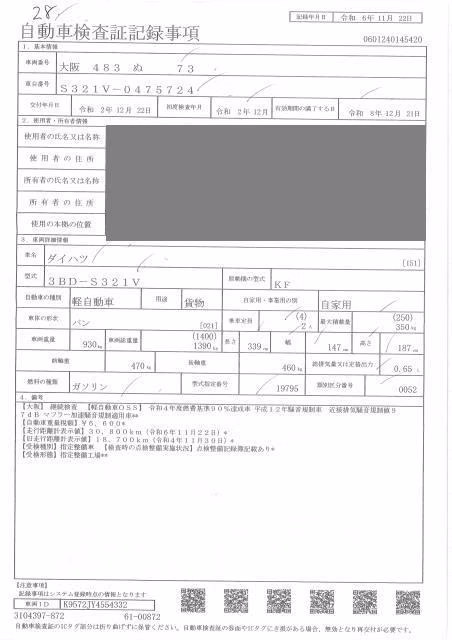 28.
記録年月日 令和 6年 11月 22日
自動車検査証記録事項
0601240145420
1．基本情報
車両番号 大阪 483 ぬ 73
車台番号 S321V-0475724
交付年月日 令和 2年 12月 22日 初度検査年月 令和 2年 12月 有効期間の満了する日 令和 8年 12月 21日
2．使用者・所有者情報
使用者の氏名又は名称
使用者の住所
所有者の氏名又は名称
所有者の住所
使用の本拠の位置
3．車両詳細情報
車名 ダイハツ [151]
型式 3BD-S321V 原動機の型式 KF
自動車の種別 軽自動車 用途 貨物 自家用・事業用の別 自家用
車体の形状 バン [021] 乗車定員 (4) 2人 最大積載量 (250) 350kg
車両重量 930kg 車両総重量 (1400) 1390kg 長さ 339cm 幅 147cm 高さ 187cm
前軸重 470kg 後軸重 460kg 総排気量又は定格出力 0.65 L
燃料の種類 ガソリン 型式指定番号 19795 類別区分番号 0052
4．備考
【大阪】 継続検査 【軽自動車OSS】 令和4年度燃費基準90%達成車 平成12年騒音規制車 近接排気騒音規制値9
7dB マフラー加速騒音規制適用車**
【自動車重量税額】¥6,600*
【走行距離計表示値】30,800km（令和6年11月22日）*
【旧走行距離計表示値】18,700km（令和4年11月30日）*
【受検種別】指定整備車 【検査時の点検整備実施状況】点検整備記録簿記載あり*
【受検形態】指定整備工場**
【注意事項】
記録事項はシステム登録時点の情報となります
車両ID K9572JY4554332
3104397-872 61-00872
自動車検査証のICタグ部分は折り曲げずに保管ください。自動車検査証の券面やICタグにき損がある場合、無効となり再交付が必要です。